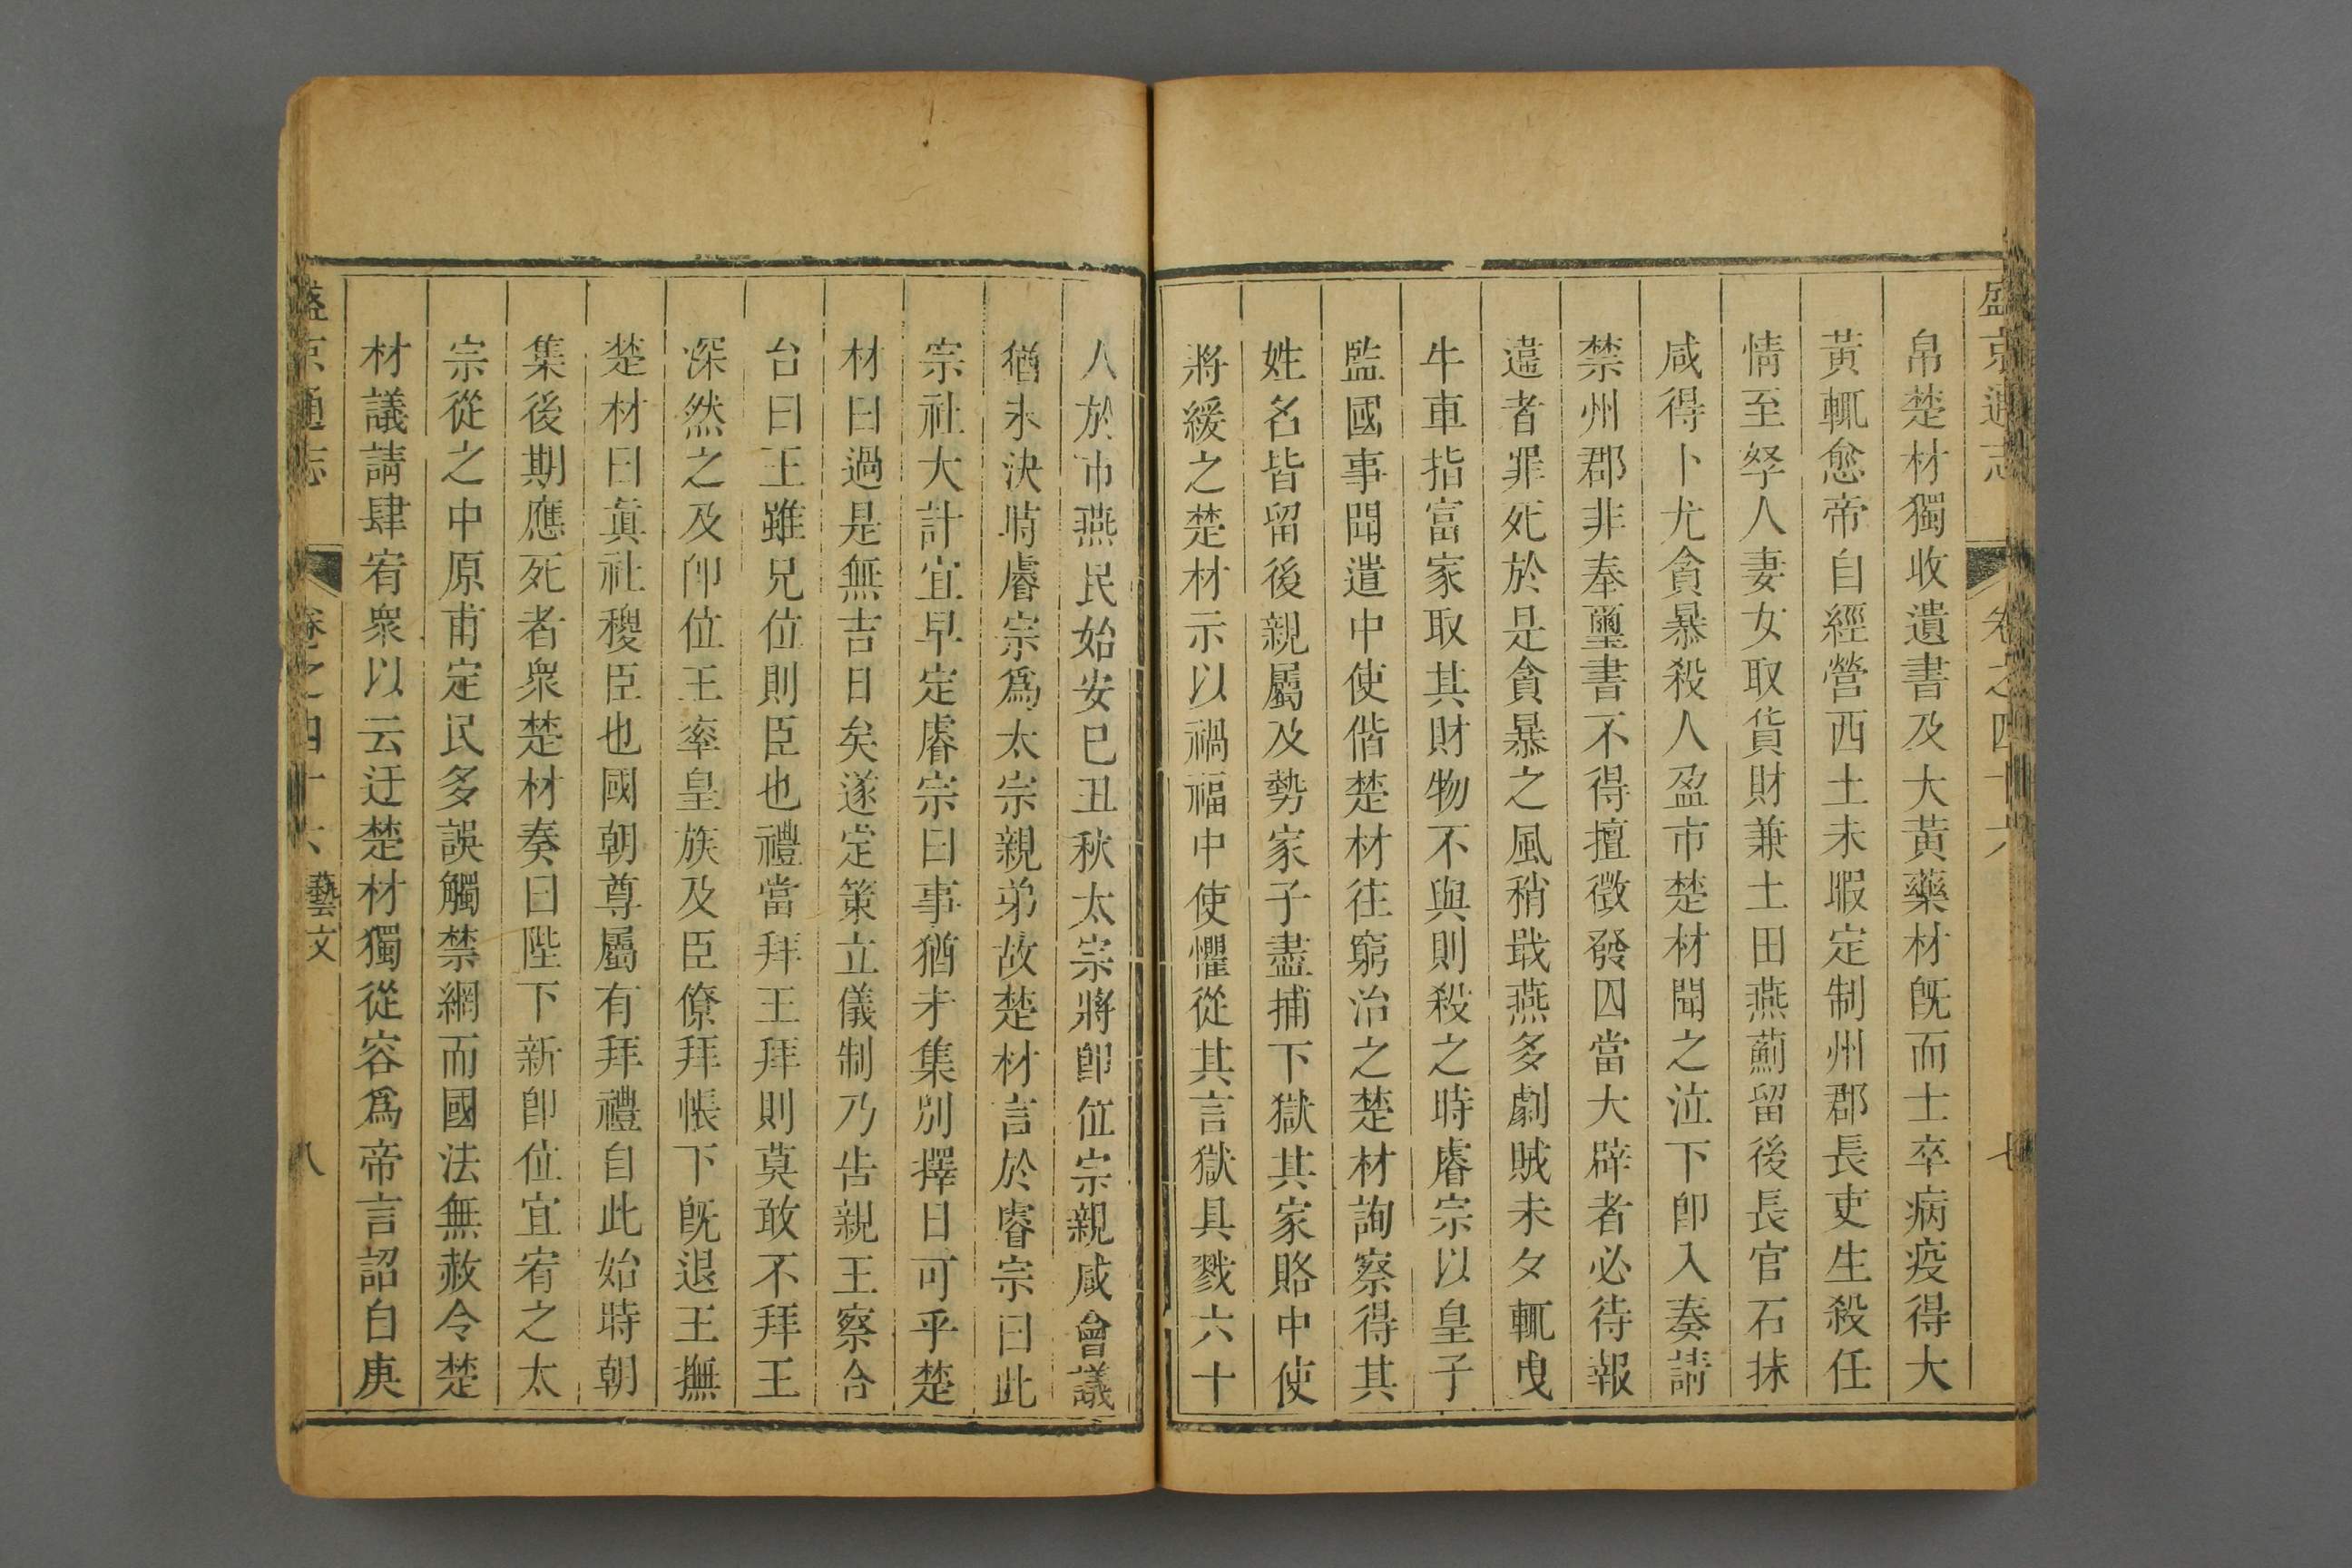 盛京通志 卷之四十六 七
帛楚材獨收遺書及大黃藥材旣而士卒病疫得大
黃輒愈帝自經營西土未暇定制州郡長吏生殺任
情至孥人妻女取貨財兼土田燕薊留後長官石抹
咸得卜尤貪暴殺人盈市楚材聞之泣下卽入奏請
禁州郡非奉璽書不得擅徵發囚當大辟者必待報
違者罪死於是貪暴之風稍戢燕多劇賊未夕輒曳
牛車指富家取其財物不與則殺之時睿宗以皇子
監國事聞遣中使偕楚材往窮治之楚材詢察得其
姓名皆留後親屬及勢家子盡捕下獄其家賂中使
將緩之楚材示以禍福中使懼從其言獄具戮六十
人於市燕民始安巳丑秋太宗將卽位宗親咸會議
猶未決時睿宗爲太宗親弟故楚材言於睿宗曰此
宗社大計宜早定睿宗曰事猶未集別擇日可乎楚
材曰過是無吉日矣遂定策立儀制乃告親王察合
台曰王雖兄位則臣也禮當拜王拜則莫敢不拜王
深然之及卽位王率皇族及臣僚拜帳下旣退王撫
楚材曰眞社稷臣也國朝尊屬有拜禮自此始時朝
集後期應死者衆楚材奏曰陛下新卽位宜宥之太
宗從之中原甫定民多誤觸禁網而國法無赦令楚
材議請肆宥衆以云迂楚材獨從容爲帝言詔自庚
盛京通志 卷之四十六 藝文 八